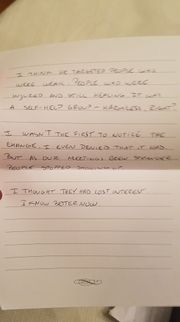 I THINK HE TARGETED PEOPLE WHO
WERE WEAK. PEOPLE WHO WERE
INJURED AND STILL HEALING. IT WAS
A SELF-HELP GROUP - HARMLESS, RIGHT?
I WASN'T THE FIRST TO NOTICE THE
CHANGE. I EVEN DENIED THAT IT HAD.
BUT AS OUR MEETINGS GREW STRANGER
PEOPLE STOPPED
I THOUGHT THEY HAD LOST INTEREST.
I KNOW BETTER NOW.